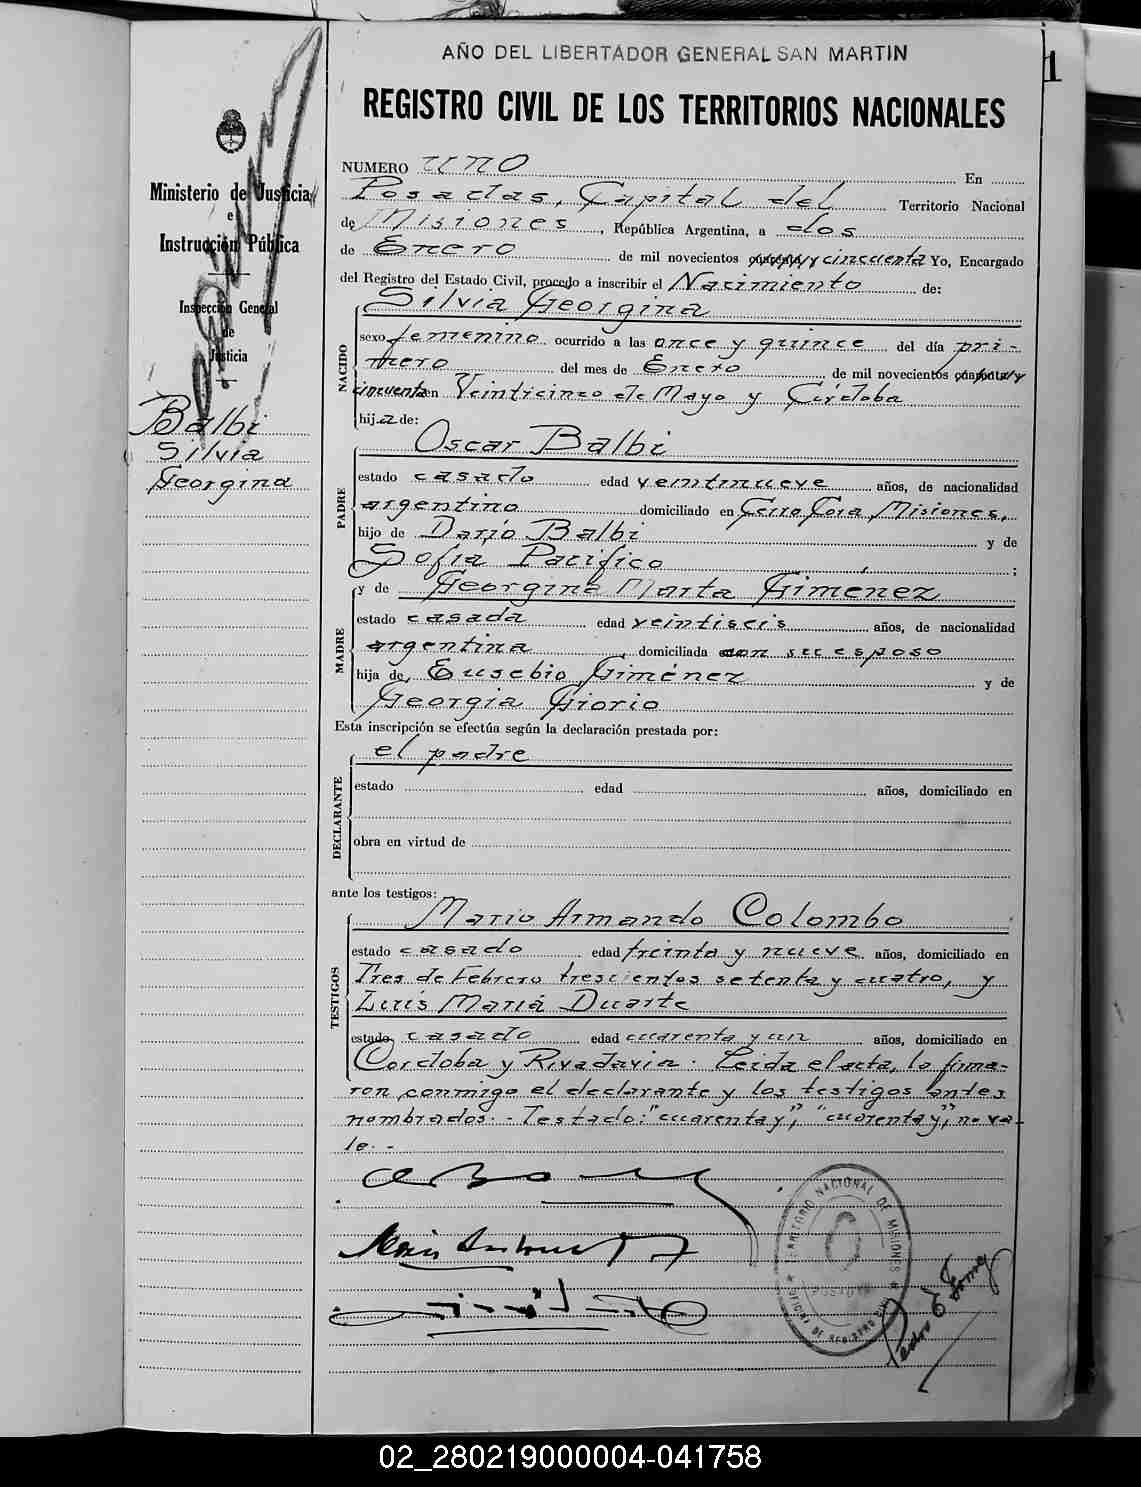 AÑO DEL LIBERTADOR GENERAL SAN MARTIN
1
REGISTRO CIVIL DE LOS TERRITORIOS NACIONALES
Ministerio de Justicia
e
Instrucción Pública
Inspección General
de
Justicia
Balbi
Silvia
Georgina
NUMERO uno En
Posadas, Capital del Territorio Nacional
de Misiones, República Argentina, a dos
de Enero de mil novecientos cuarenta y cincuenta Yo, Encargado
del Registro del Estado Civil, procedo a inscribir el Nacimiento de:
NACIDO
Silvia Georgina
sexo femenino ocurrido a las once y quince del día pri-
mero del mes de Enero de mil novecientos cuarenta y
cincuenta en Veinticinco de Mayo y Córdoba
hija de:
PADRE
Oscar Balbi
estado casado edad veintinueve años, de nacionalidad
argentino domiciliado en Cerro Cora Misiones,
hijo de Darío Balbi y de
Sofía Pacífico ;
MADRE
y de Georgina Marta Gimenez
estado casada edad veintiseis años, de nacionalidad
argentina, domiciliada con su esposo
hija de, Eusebio Giménez y de
Georgia Giorio
Esta inscripción se efectúa según la declaración prestada por:
DECLARANTE
el padre
estado edad años, domiciliado en
obra en virtud de
ante los testigos:
TESTIGOS
Mario Armando Colombo
estado casado edad treinta y nueve años, domiciliado en
Tres de Febrero trescientos setenta y cuatro, y
Luis María Duarte
estado casado edad cuarenta y un años, domiciliado en
Cordoba y Rivadavia. Leida el acta, la firma-
ron conmigo el declarante y los testigos antes
nombrados.- Testado: "cuarenta y", "cuarenta y", no va-
le.-
TERRITORIO NACIONAL DE MISIONES
Pedro E
02_280219000004-041758